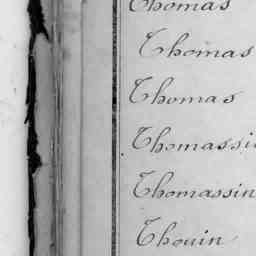 Thomas
Thomas
Thomas
Thomassin
Thomassin
Thouin